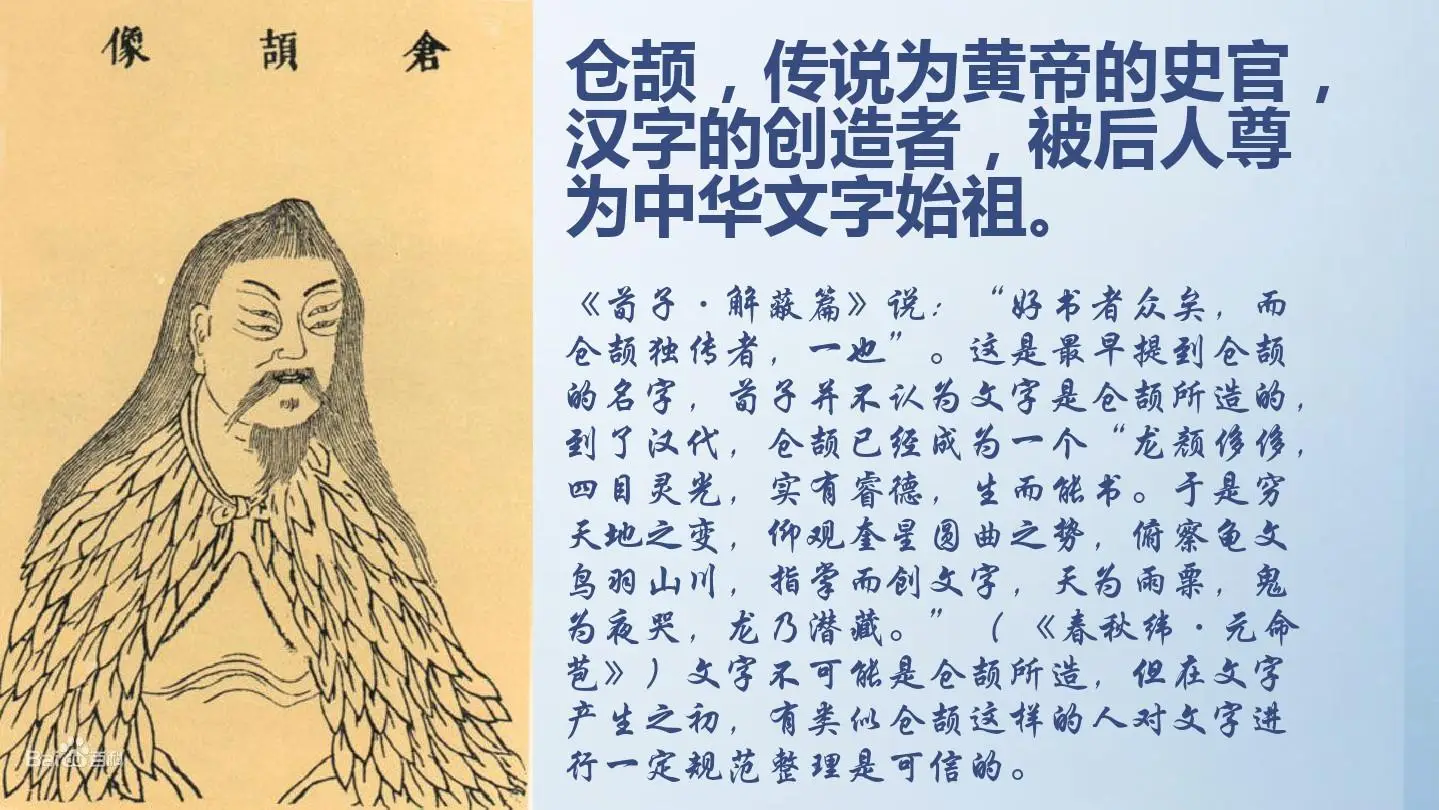 倉頡像
仓颉，传说为黄帝的史官，
汉字的创造者，被后人尊
为中华文字始祖。
《荀子·解蔽篇》说：“好书者众矣，而
仓颉独传者，一也”。这是最早提到仓颉
的名字，荀子并不认为文字是仓颉所造的，
到了汉代，仓颉已经成为一个“龙颜侈侈，
四目灵光，实有睿德，生而能书。于是穷
天地之变，仰观奎星圆曲之势，俯察龟文
鸟羽山川，指掌而创文字，天为雨粟，鬼
为夜哭，龙乃潜藏。”（《春秋纬·元命
苞》）文字不可能是仓颉所造，但在文字
产生之初，有类似仓颉这样的人对文字进
行一定规范整理是可信的。
Bai百科